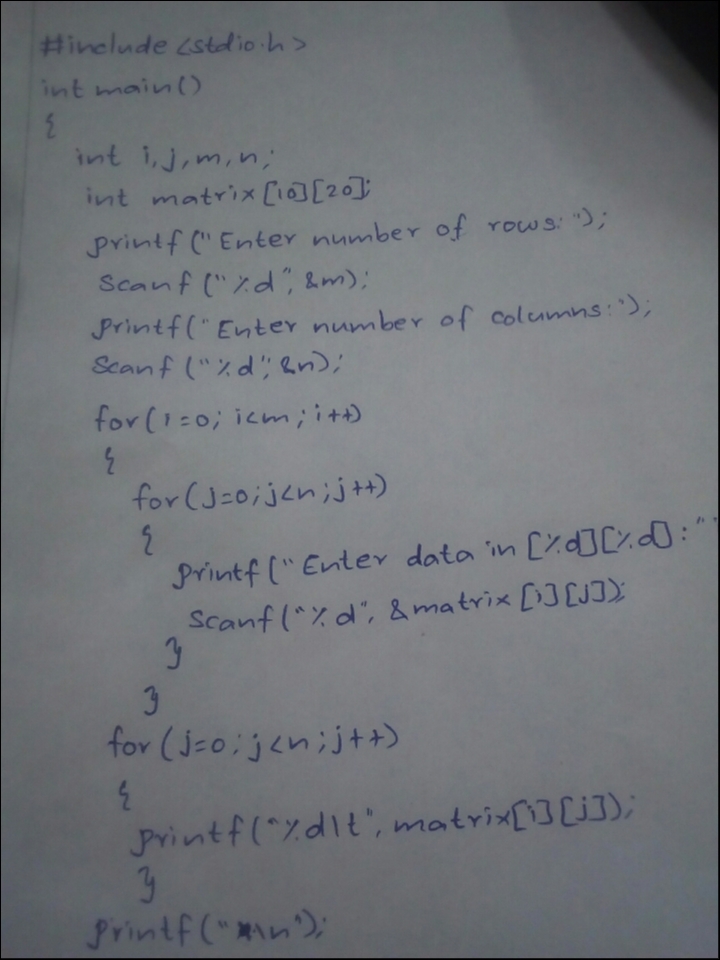 #include <stdio.h>
int main()
{
int i, j, m, n;
int matrix [10][20];
printf ("Enter number of rows: ");
Scanf ("%d", &m);
printf("Enter number of columns: ");
Scanf ("%d", &n);
for(i=0; i<m; i++)
{
for(j=0; j<n; j++)
{
printf ("Enter data in [%d][%d] : "
Scanf ("%d", &matrix [i][j]);
}
}
for (j=0; j<n; j++)
{
printf("%d\t", matrix[i][j]);
}
printf("\n");